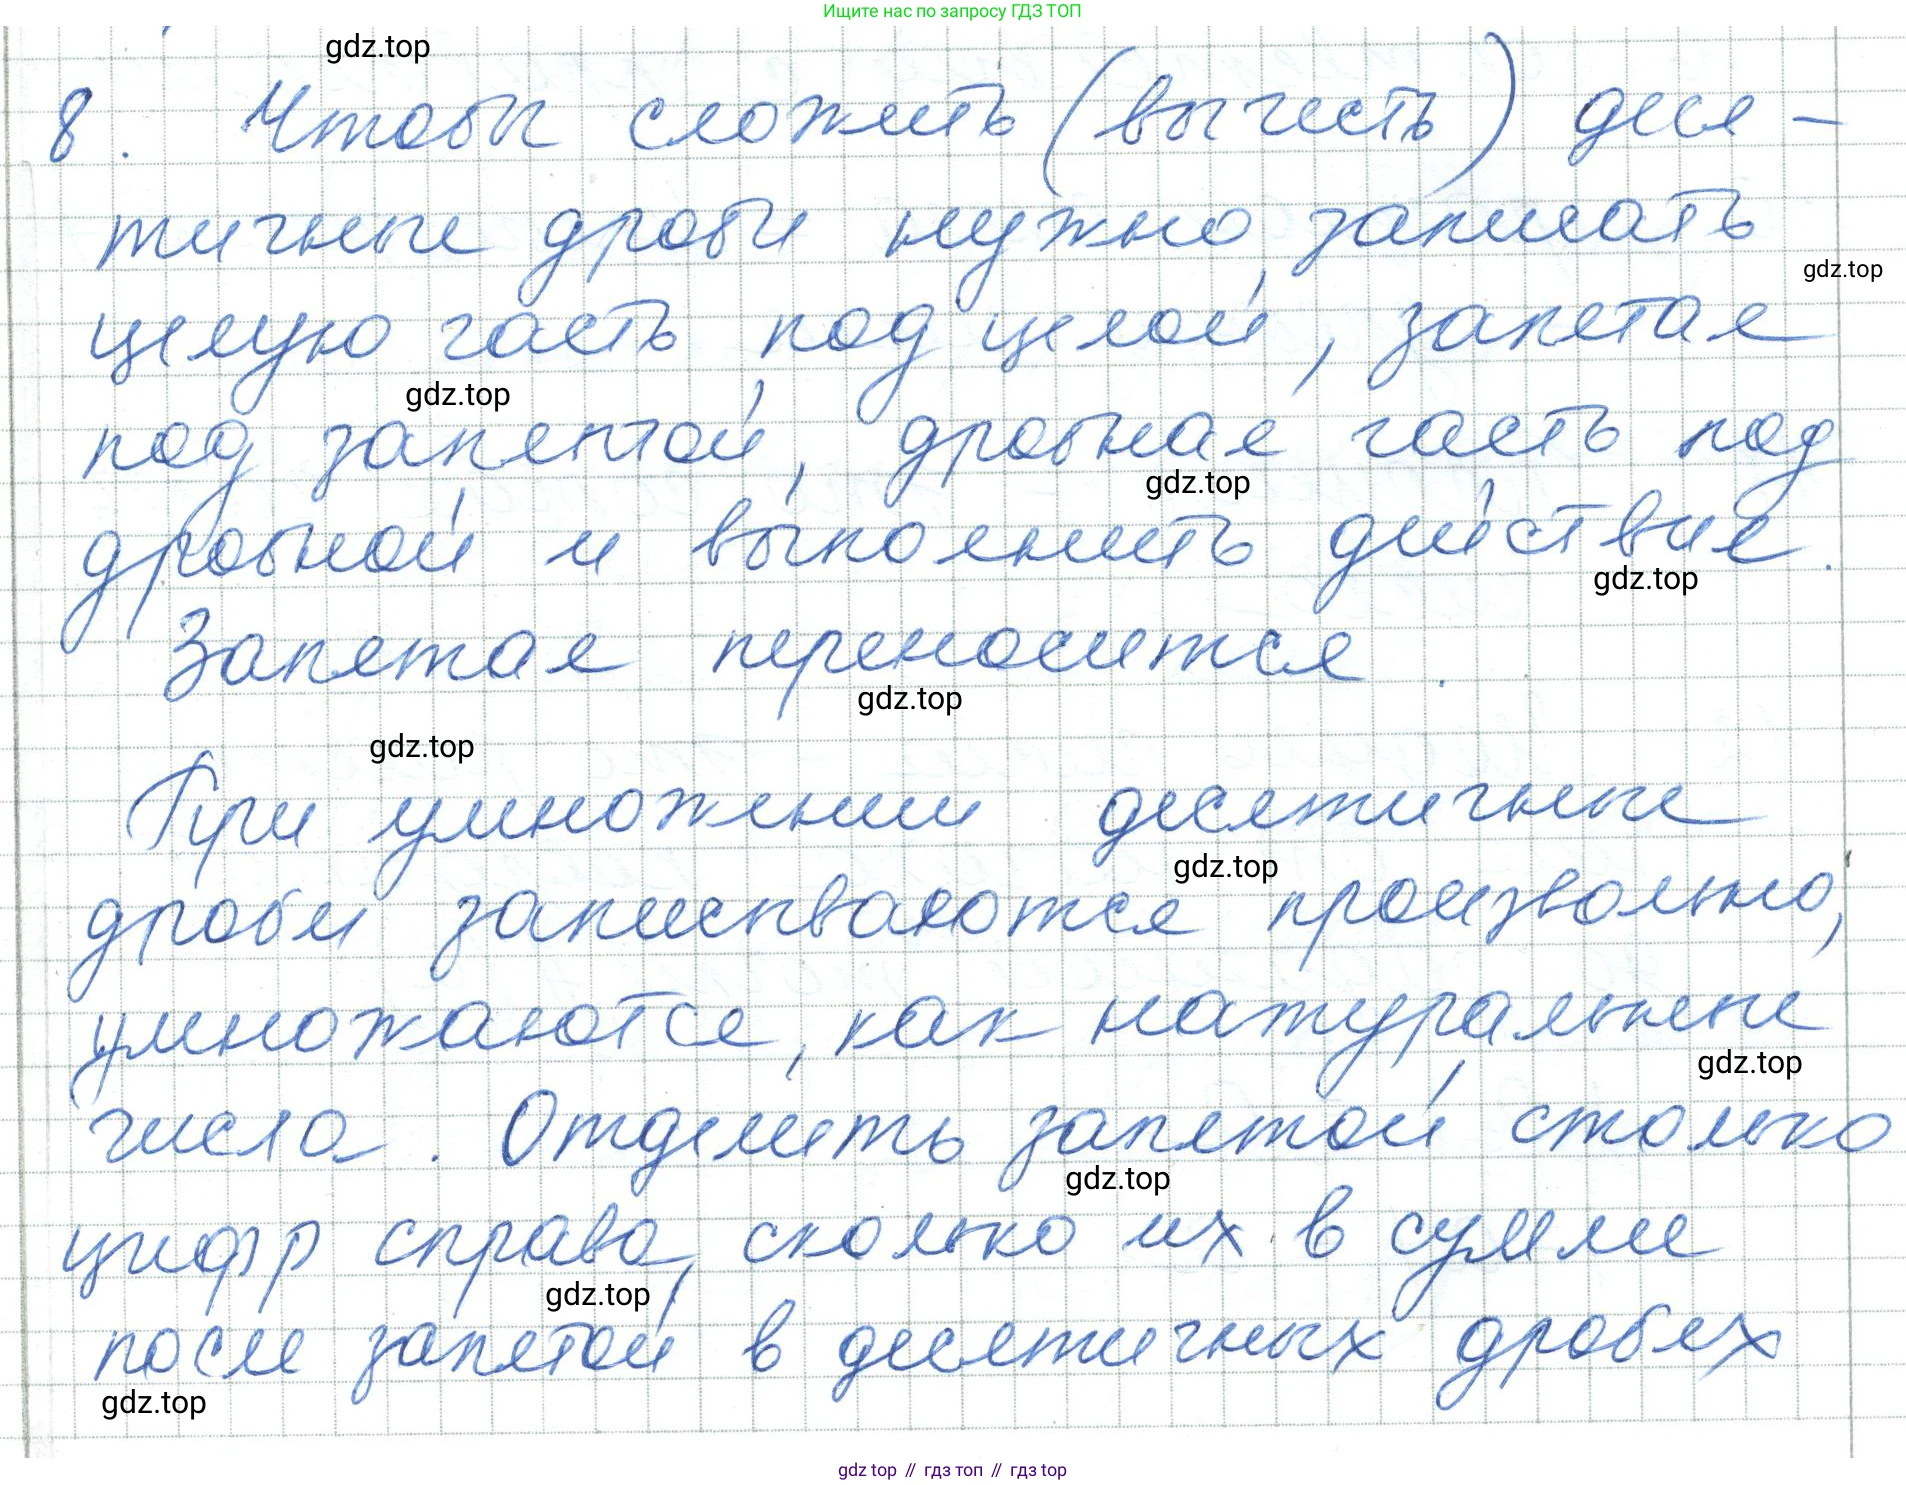 Ищите нас по запросу ГДЗ ТОП
gdz.top
8. Чтобы сложить (вычесть) деся-
тичные дроби нужно записать
gdz.top
целую часть под целой, запетая
gdz.top
под запятой, дробная часть под
gdz.top
дробной и выполнить действие.
gdz.top
Запятая переносится.
gdz.top
gdz.top
При умножении десятичные
gdz.top
дроби записываются произвольно,
умножаются, как натуральные
gdz.top
числа. Отделить запятой столько
gdz.top
цифр справа, сколько их в сумме
gdz.top
после запятой в десятичных дробях
gdz.top
gdz top // гдз топ // гдз top